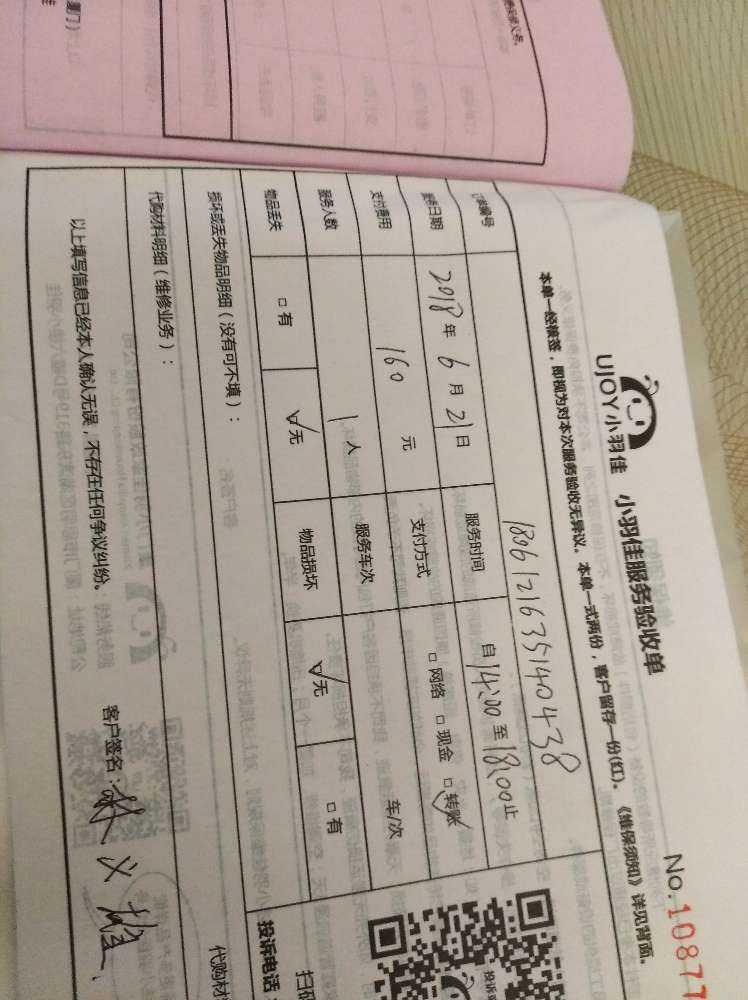 No.10877
UJOY小羽佳 小羽佳服务验收单
本单一经核签，即视为对本次服务验收无异议。本单一式两份，客户留存一份(红)。《维保须知》详见背面。
订单编号 1806121635140438
服务日期 2018年6月21日 服务时间 自14:00至18:00止
支付费用 160元 支付方式 □网络 □现金 ☑转账
服务人数 1人 服务车次 车/次
物品丢失 □有 ☑无 物品损坏 ☑无 □有
损坏或丢失物品明细（没有可不填）：
代购材料明细（维修业务）：
代购材
以上填写信息已经本人确认无误，不存在任何争议纠纷。 客户签名：林义
投诉
扫码
投诉电话：